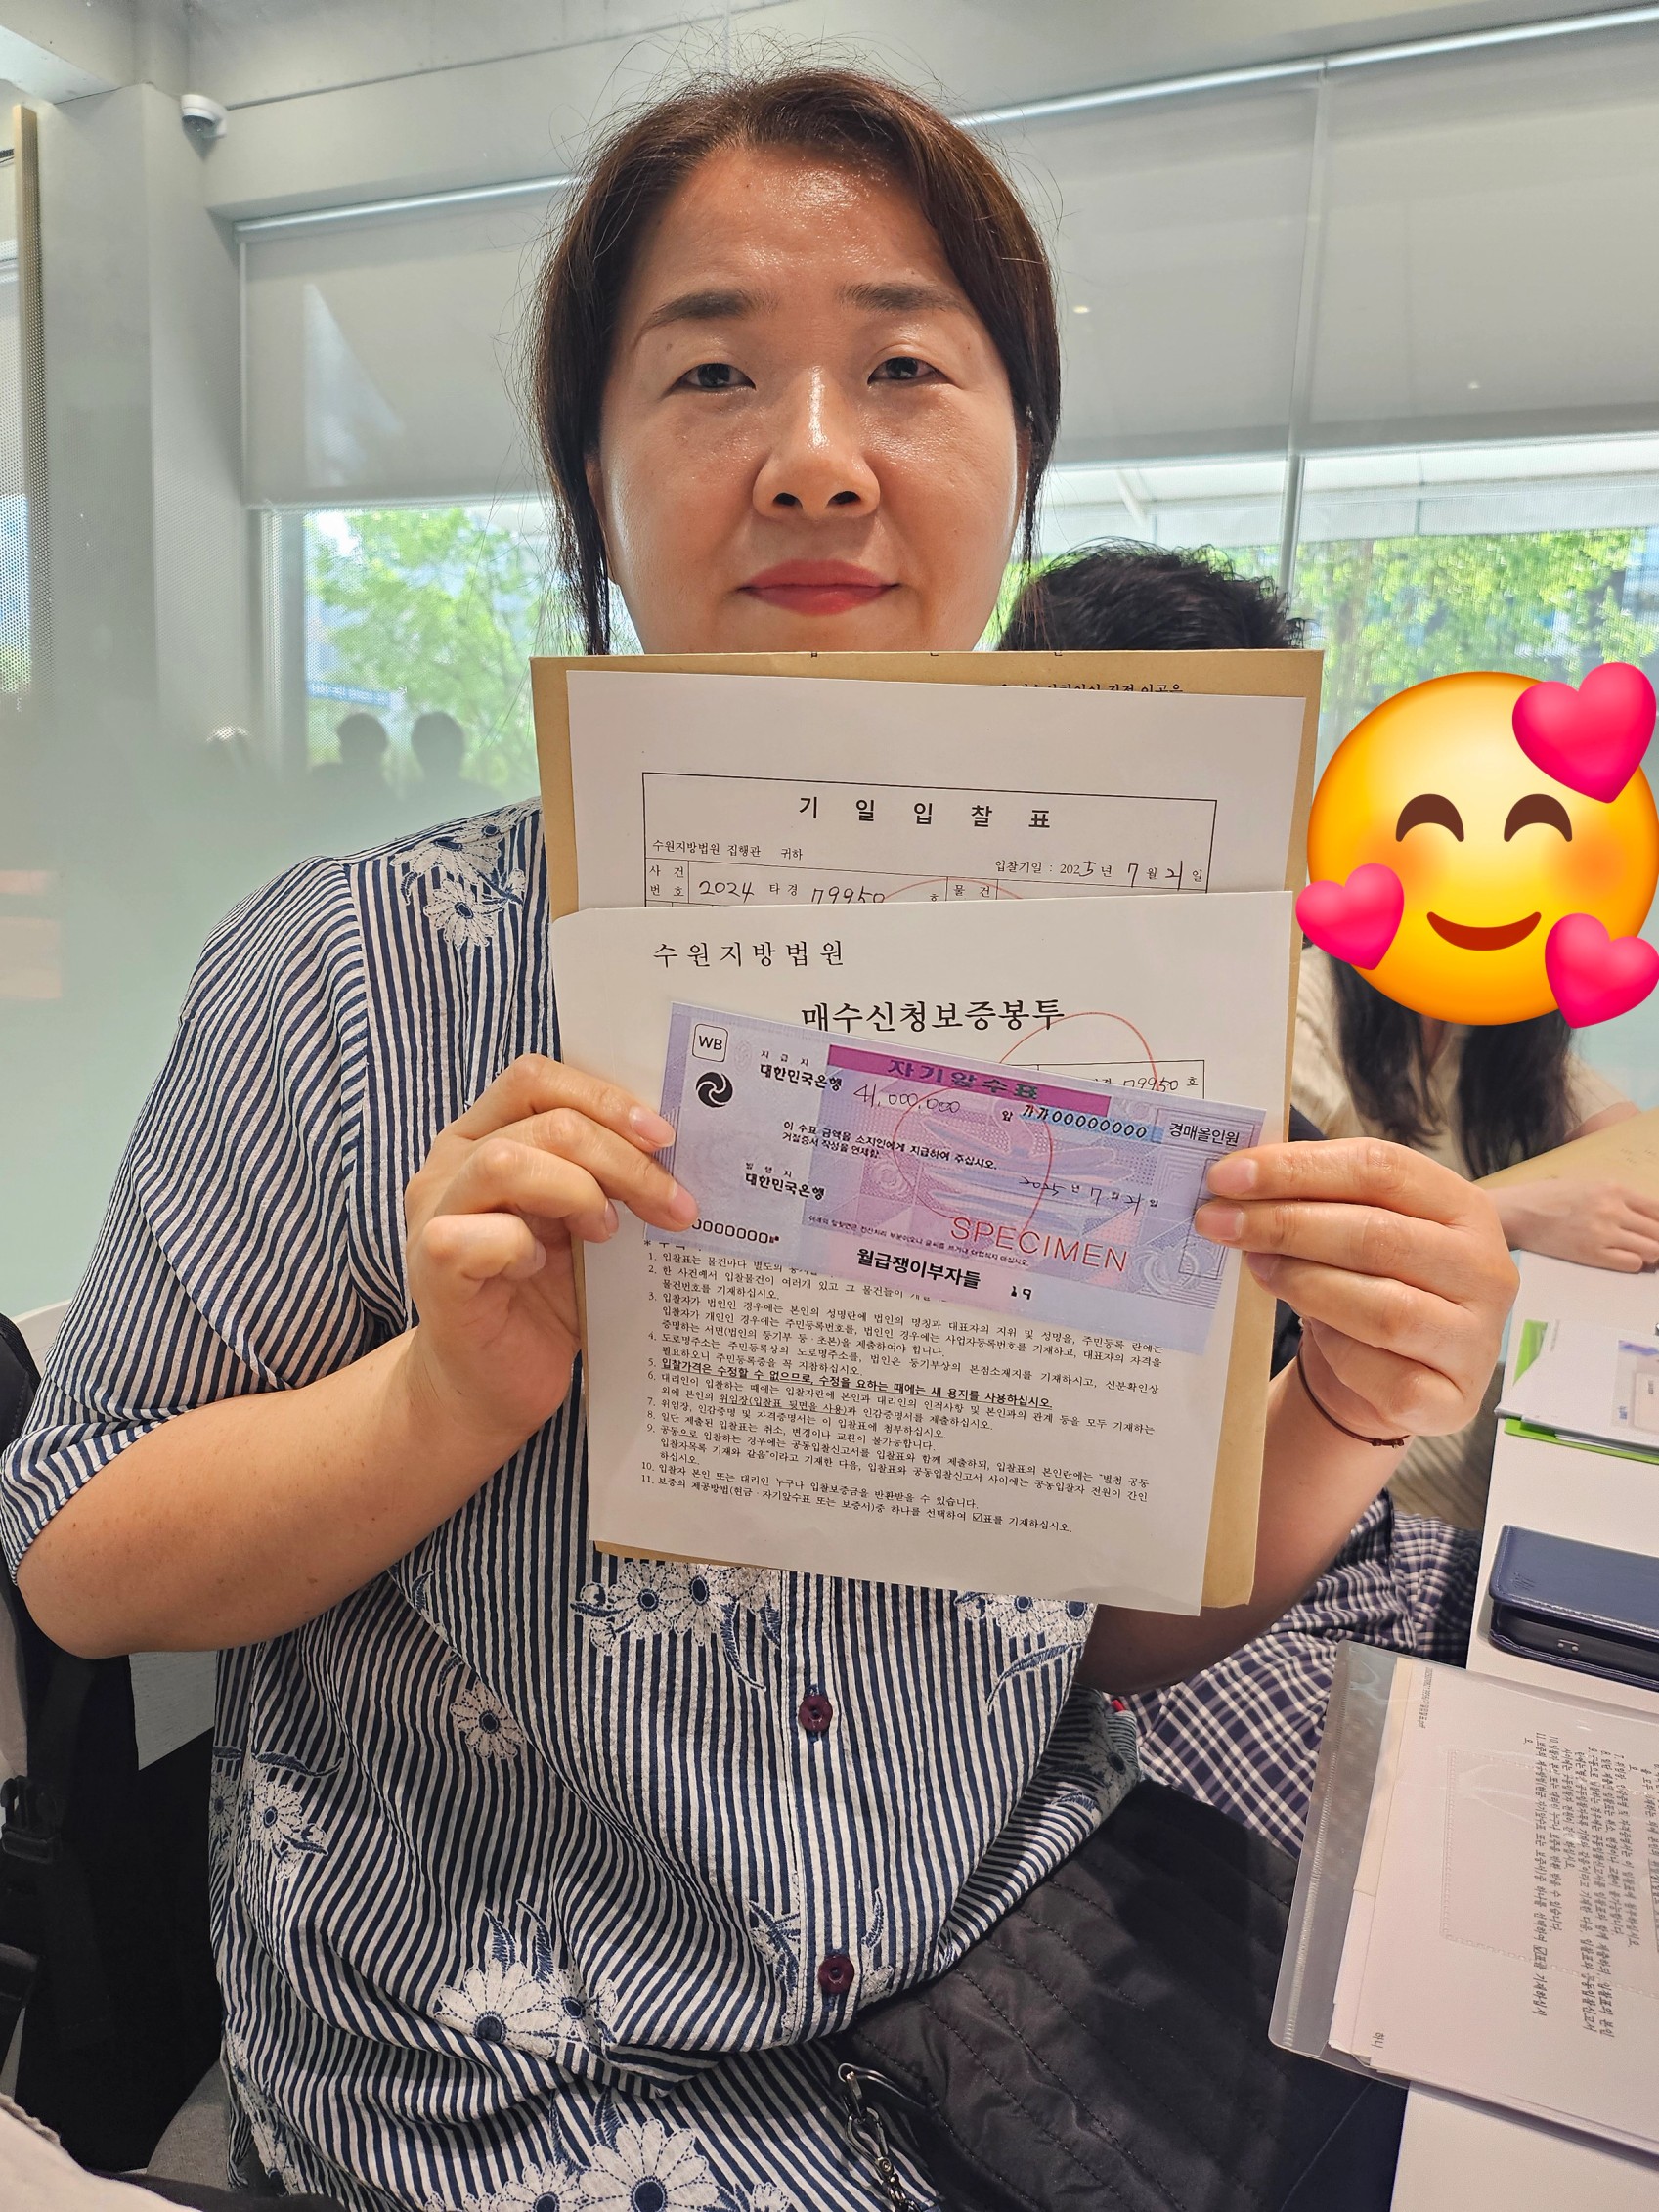 기 일 입 찰 표
수원지방법원 집행관 귀하
입찰기일 : 2025년 7월 21일
사 건 번 호 2024 타경 79950 호 물 건
수원지방법원
매수신청보증봉투
79950 호
WB
지급지
대한민국은행
자기앞수표
41,000,000
앞 가가00000000 경매올인원
이 수표 금액을 소지인에게 지급하여 주십시오.
거절증서 작성을 면제함.
발행지
대한민국은행
2025년 7월 21일
SPECIMEN
월급쟁이부자들 19
1. 입찰표는 물건마다 별도의
2. 한 사건에서 입찰물건이 여러개 있고 그 물건들이
물건번호를 기재하십시오.
3. 입찰자가 법인인 경우에는 본인의 성명란에 법인의 명칭과 대표자의 지위 및 성명을, 주민등록 란에는
입찰자가 개인인 경우에는 주민등록번호를, 법인인 경우에는 사업자등록번호를 기재하고, 대표자의 자격을
증명하는 서면(법인의 등기부 등·초본)을 제출하여야 합니다.
4. 도로명주소는 주민등록상의 도로명주소를, 법인은 등기부상의 본점소재지를 기재하시고, 신분확인상
필요하오니 주민등록증을 꼭 지참하십시오.
5. 입찰가격은 수정할 수 없으므로, 수정을 요하는 때에는 새 용지를 사용하십시오.
6. 대리인이 입찰하는 때에는 입찰자란에 본인과 대리인의 인적사항 및 본인과의 관계 등을 모두 기재하는
외에 본인의 위임장(입찰표 뒷면을 사용)과 인감증명서를 제출하십시오.
7. 위임장, 인감증명 및 자격증명서는 이 입찰표에 첨부하십시오.
8. 일단 제출된 입찰표는 취소, 변경이나 교환이 불가능합니다.
9. 공동으로 입찰하는 경우에는 공동입찰신고서를 입찰표와 함께 제출하되, 입찰표의 본인란에는 "별첨 공동
입찰자목록 기재와 같음"이라고 기재한 다음, 입찰표와 공동입찰신고서 사이에는 공동입찰자 전원이 간인
하십시오.
10. 입찰자 본인 또는 대리인 누구나 입찰보증금을 반환받을 수 있습니다.
11. 보증의 제공방법(현금·자기앞수표 또는 보증서)중 하나를 선택하여 ☑표를 기재하십시오.